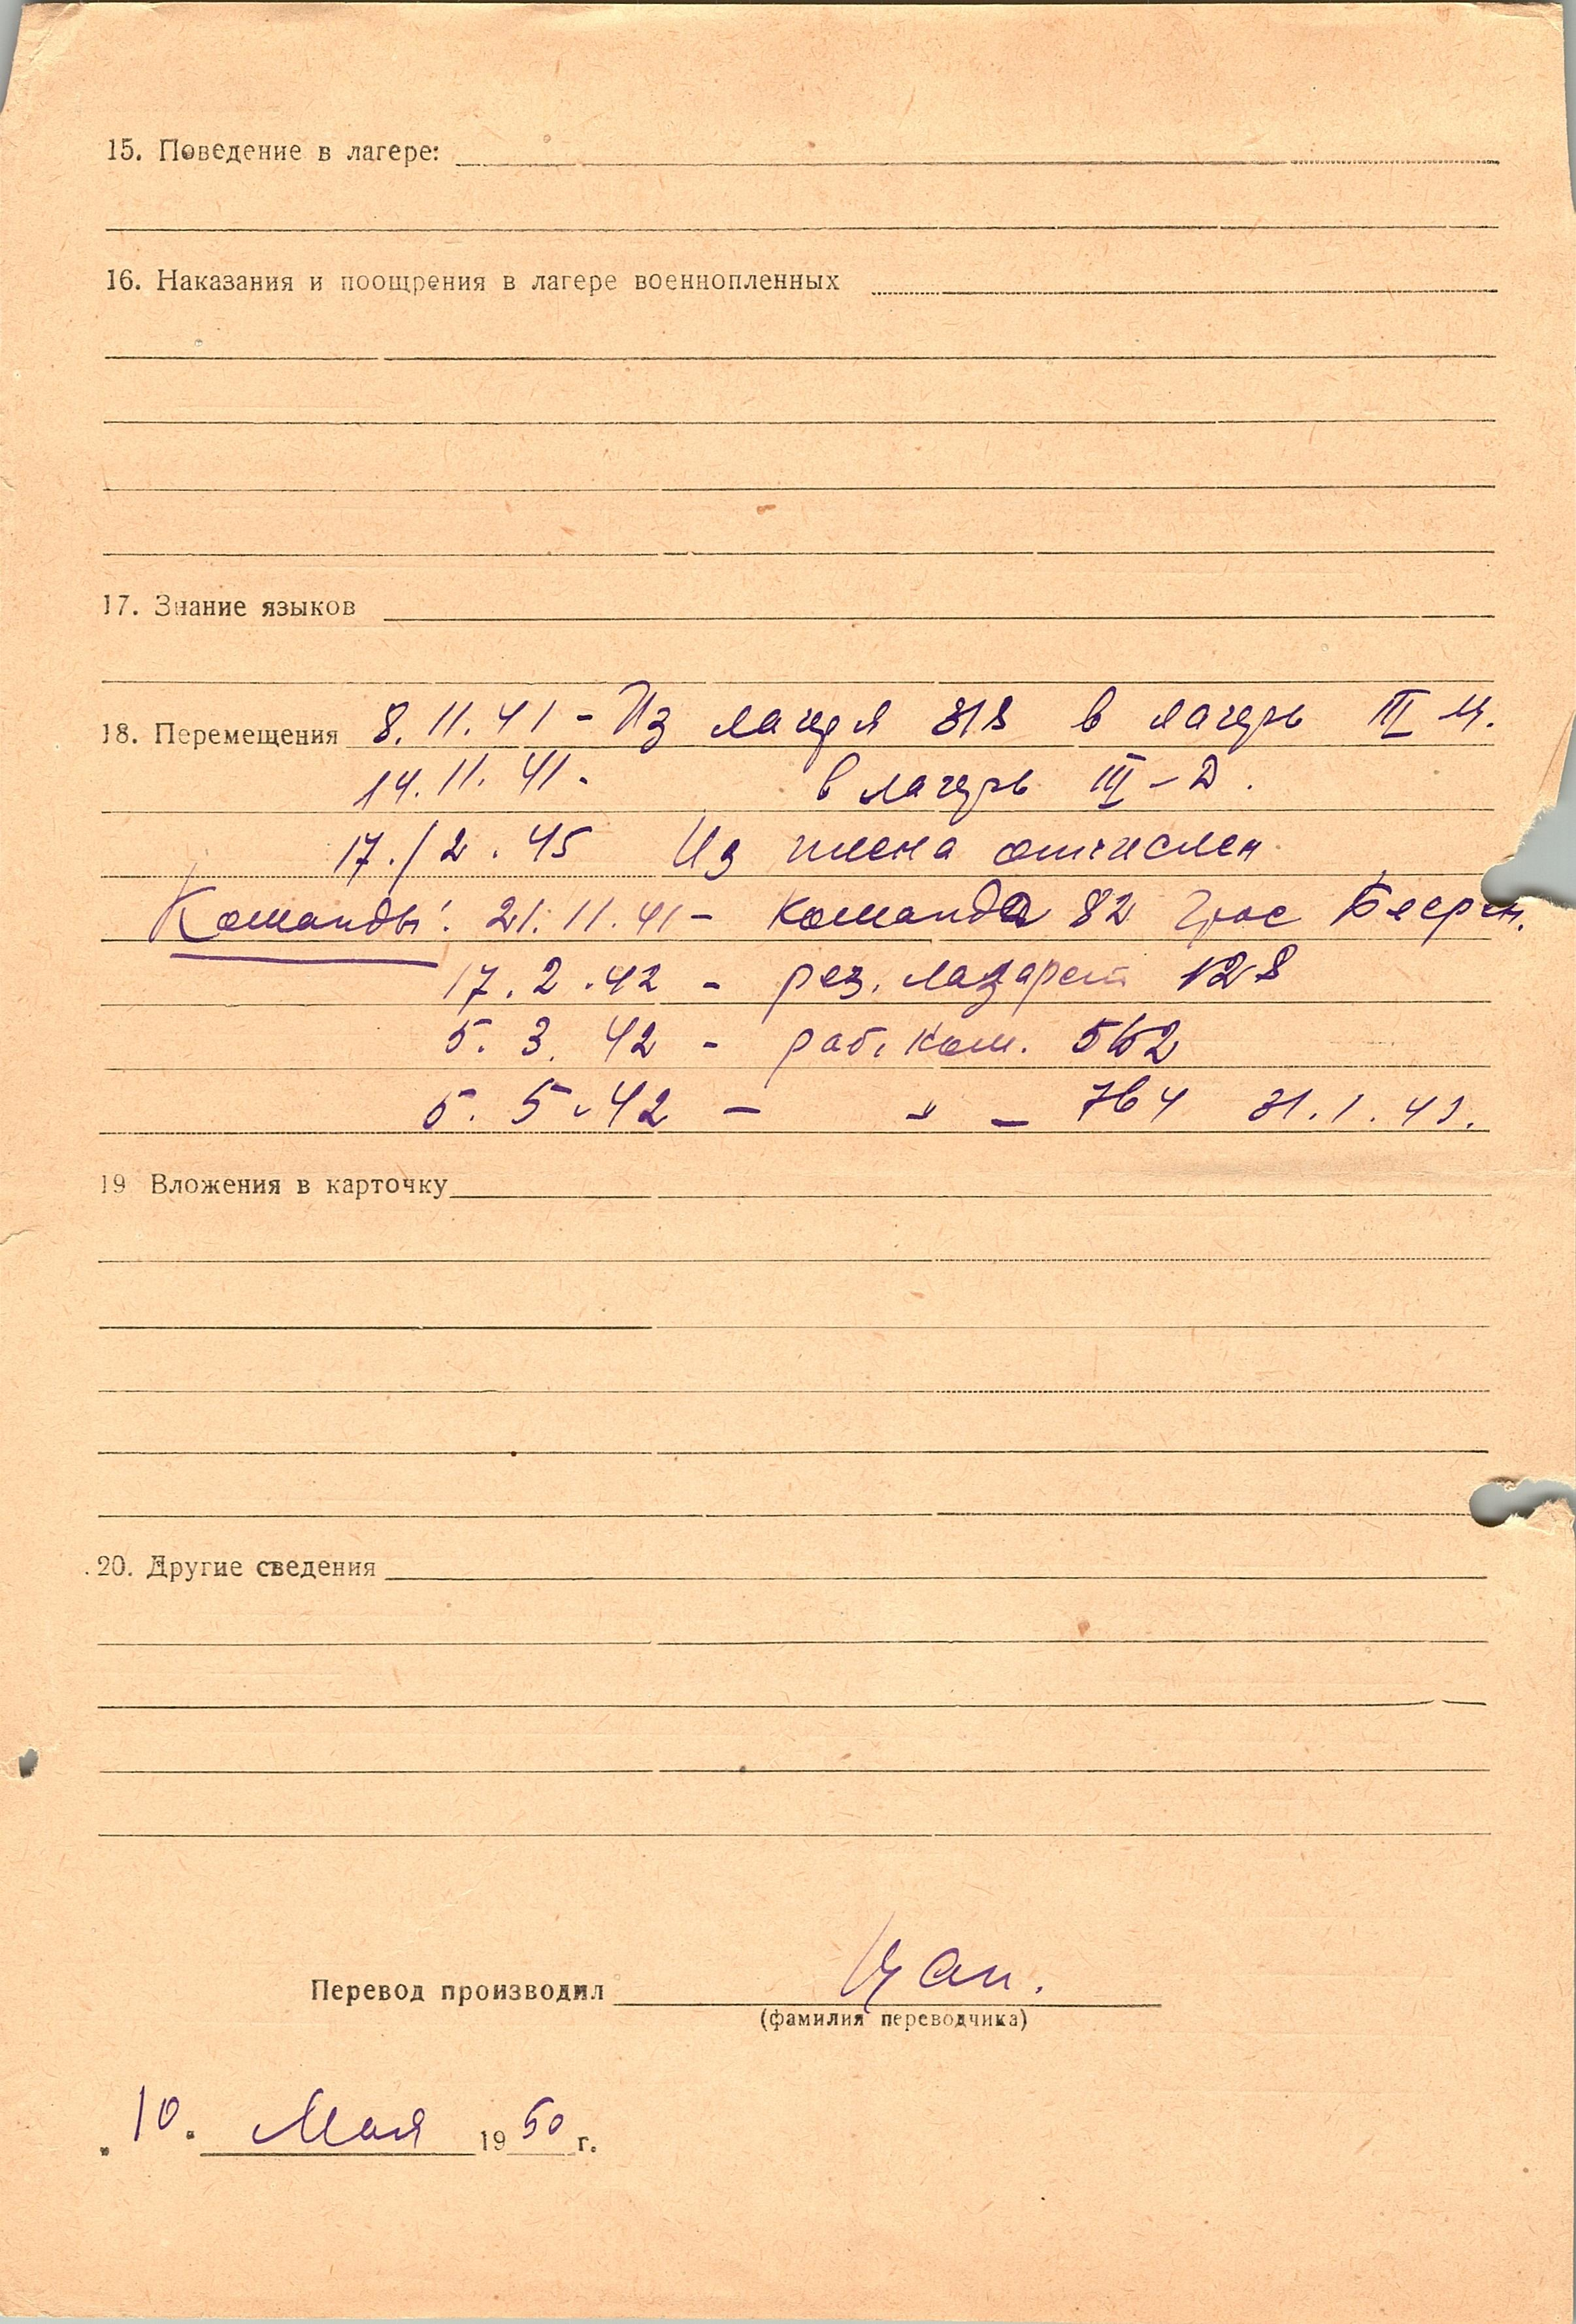 15. Поведение в лагере:
16. Наказания и поощрения в лагере военнопленных
17. Знание языков
18. Перемещения 8.11.41 - Из лагеря 318 в лагерь III
14.11.41. в лагерь III-Д.
17./2.45 Из плена отчислен
Команды: 21.11.41 - команда 82 Грос Беерен.
17.2.42 - рез. лазарет 128
5. 3. 42 - раб. ком.
5. 5. 42 - " - 764
19 Вложения в карточку
20. Другие сведения
Перевод производил
(фамилия переводчика)
„10" Мая 1950 г.